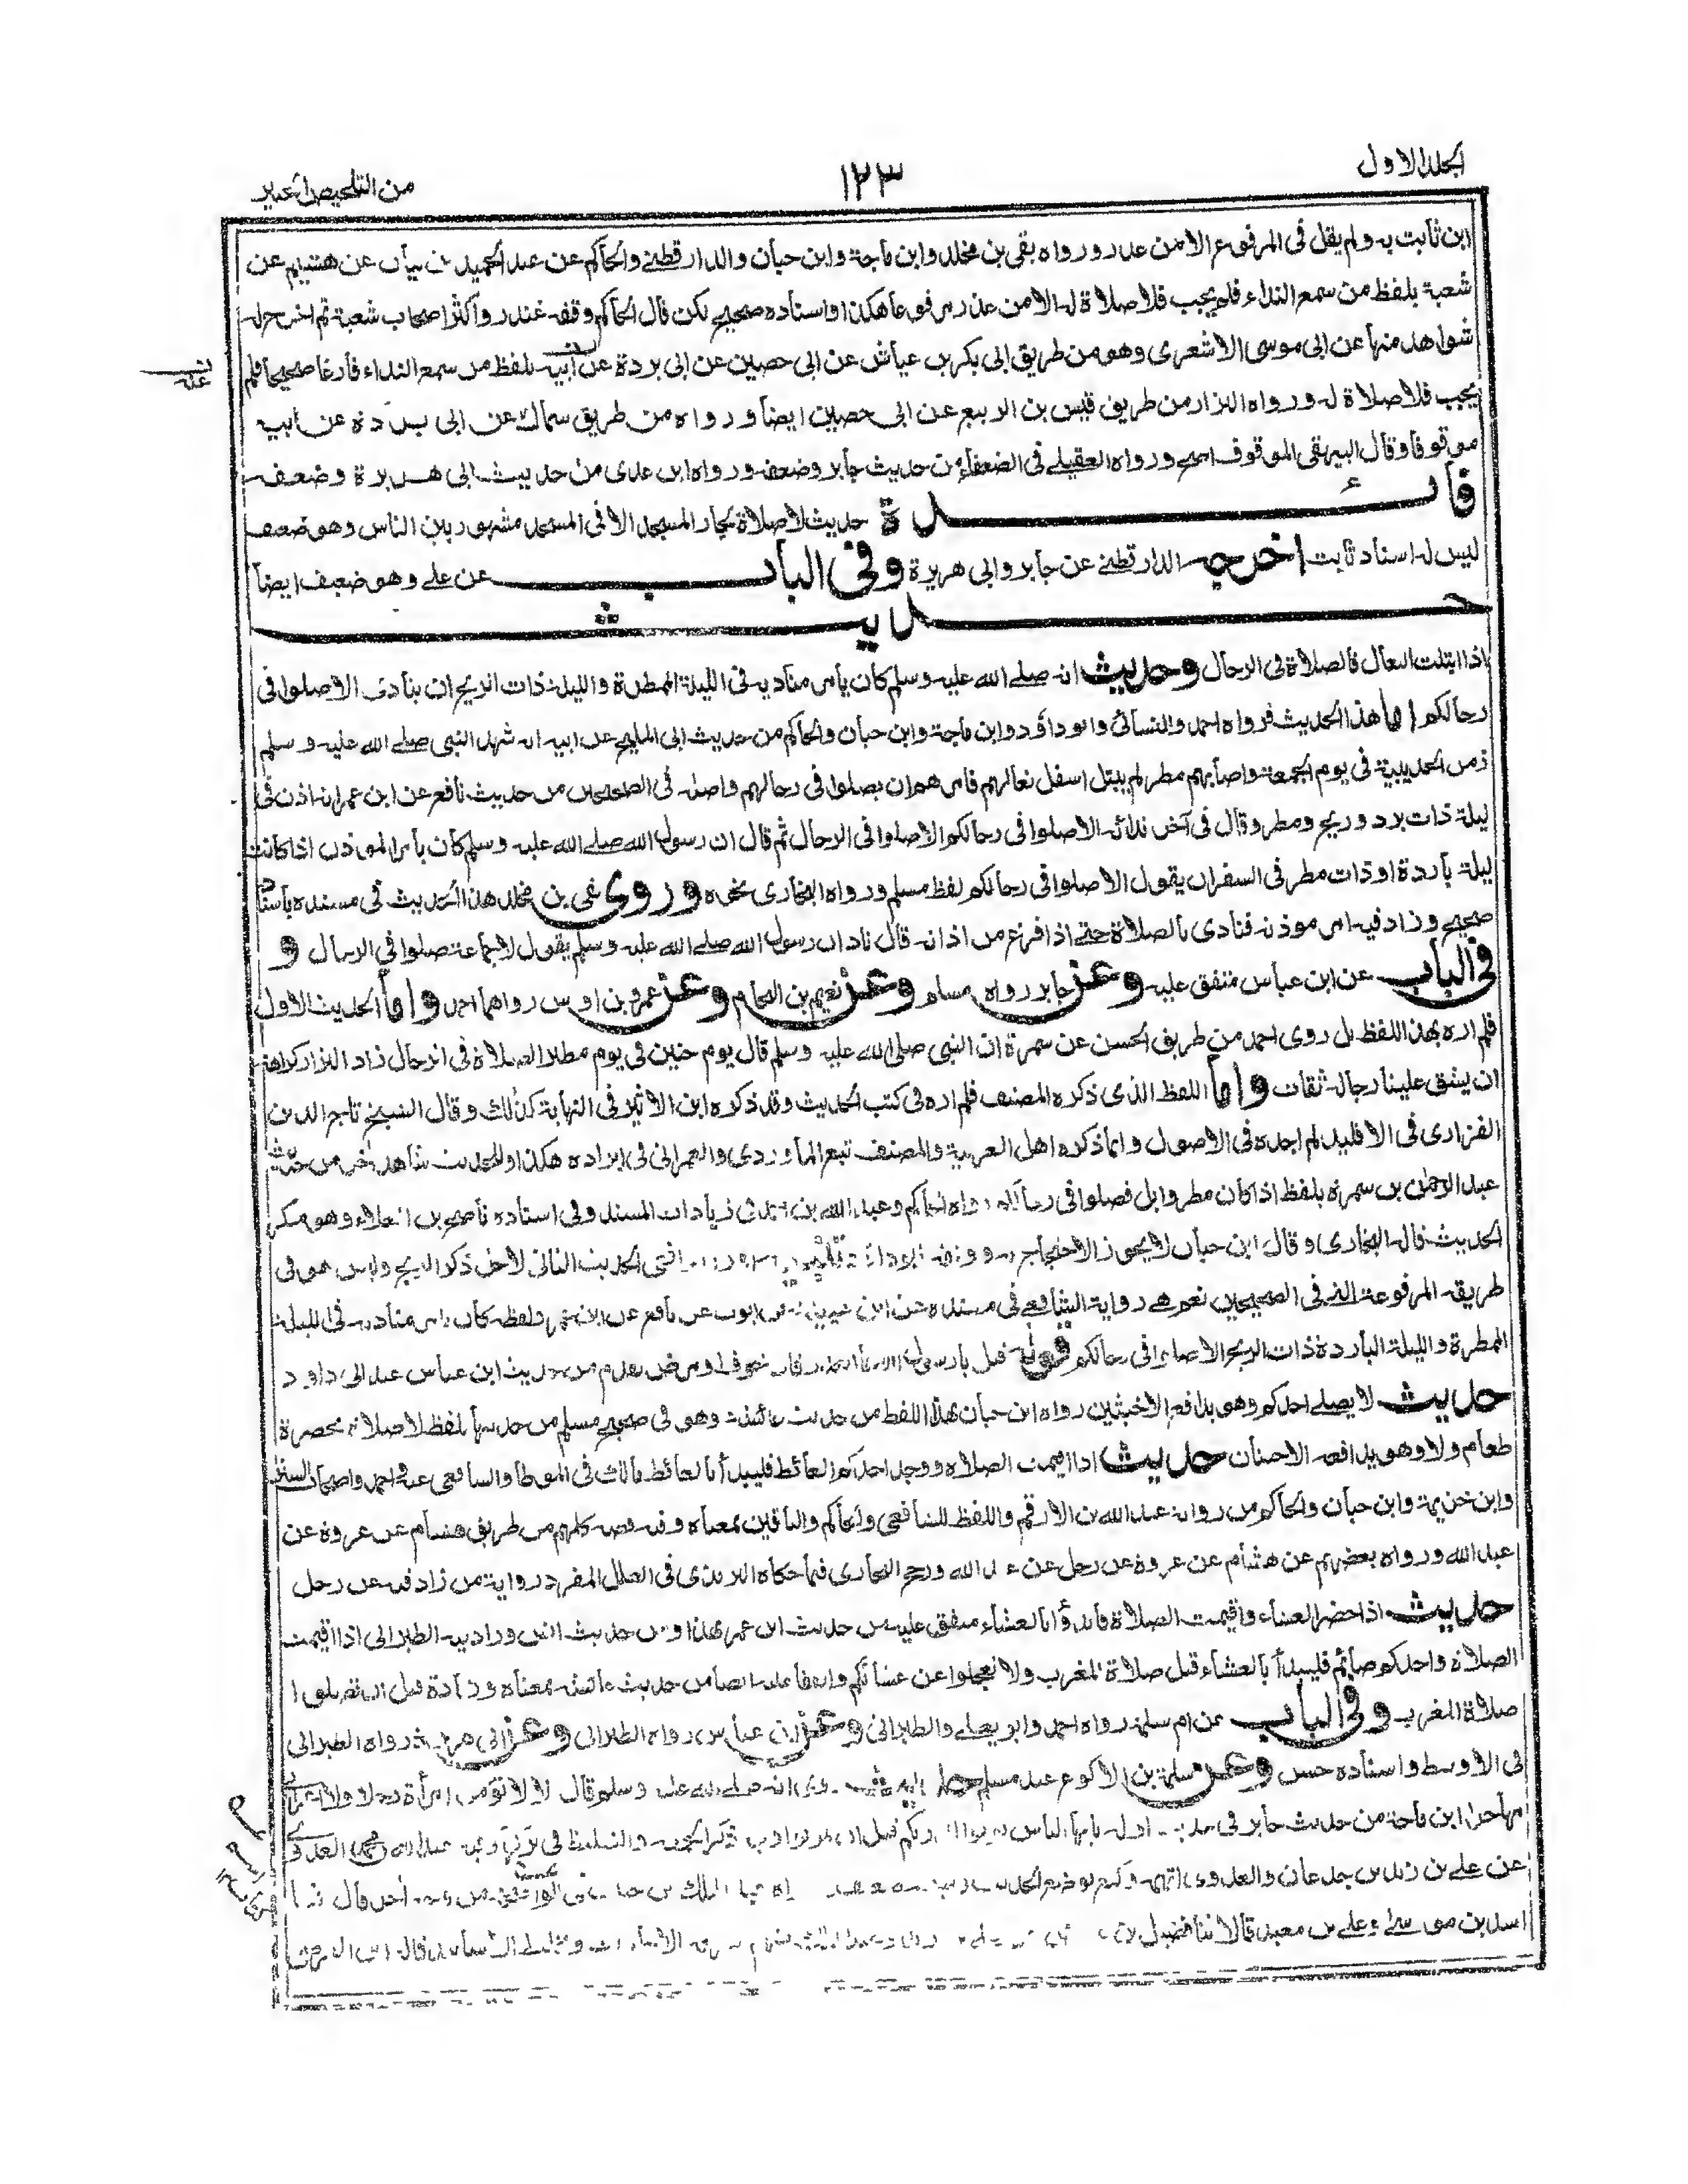 الجلد الاول
١٢٣
من التلخيص الحبير
ابن ثابت به ولم يقل فى المرفوع الا من عذر ورواه بقى بن مخلد وابن ماجة وابن حبان والدارقطنے والحاكم عن عبد الحميد بن بيان عن هشيم عن
شعبة بلفظ من سمع النداء فلم يجب فلا صلاة له الا من عذر مرفوعا هكذا واسناده صحيح لكن قال الحاكم وقفه غندر واكثر اصحاب شعبة ثم اخرج له
شواهد منها عن ابى موسى الاشعرى وهو من طريق ابى بكر بن عياش عن ابى حصين عن ابى بردة عن ابيه بلفظ من سمع النداء فارغا صحيحا فلم
يجب فلا صلاة له ورواه البزار من طريق قيس بن الربيع عن ابى حصين ايضا ورواه من طريق سماك عن ابى بردة عن ابيه
موقوفا وقال البيهقى الموقوف اصح ورواه العقيلے فى الضعفاء من حديث جابر وضعفه ورواه ابن عدى من حديث ابى هريرة وضعفه
فائدة حديث لا صلاة لجار المسجد الا فى المسجد مشهور بين الناس وهو ضعيف
ليس له اسناد ثابت اخرجه الدارقطنے عن جابر وابى هريرة وفى الباب عن علے وهو ضعيف ايضا
حديث
اذا ابتلت النعال فالصلاة فى الرحال وحديث انه صلے الله عليه وسلم كان يامر مناديه فى الليلة الممطرة والليلة ذات الريح ان ينادى الا صلوا فى
رحالكم اما هذا الحديث فرواه احمد والنسائى وابو داؤد وابن ماجة وابن حبان والحاكم من حديث ابى المليح عن ابيه انه شهد النبى صلے الله عليه وسلم
زمن الحديبية فى يوم الجمعة واصابهم مطر لم يبتل اسفل نعالهم فامرهم ان يصلوا فى رحالهم واصله فى الصحيحين من حديث نافع عن ابن عمر انه اذن فى
ليلة ذات برد وريح ومطر وقال فى آخر ندائه الا صلوا فى رحالكم الا صلوا فى الرحال ثم قال ان رسول الله صلے الله عليه وسلم كان يأمر المؤذن اذا كانت
ليلة باردة او ذات مطر فى السفر ان يقول الا صلوا فى رحالكم لفظ مسلم ورواه البخارى نحوه وروى بقى بن مخلد هذا الحديث فى مسنده باسناد
صحيح وزاد فيه امر موذنه فنادى بالصلاة حتے اذا فرغ من اذانه قال ناد ان رسول الله صلے الله عليه وسلم يقول لا جماعة صلوا فى الرحال و
فى الباب عن ابن عباس متفق عليه وعن جابر رواه مسلم وعن نعيم بن النحام وعن عمرو بن اوس رواهما احمد واما الحديث الاول
فلم اره بهذا اللفظ بل روى احمد من طريق الحسن عن سمرة ان النبى صلى الله عليه وسلم قال يوم حنين فى يوم مطر الصلاة فى الرحال زاد البزار كراهة
ان يشق علينا رجاله ثقات واما اللفظ الذى ذكره المصنف فلم اره فى كتب الحديث وقد ذكره ابن الاثير فى النهاية كذلك وقال الشيخ تاج الدين
الفزارى فى الاقليد لم اجده فى الاصول وانما ذكره اهل العربية والمصنف تبع الماوردى والعمرانى فى ايراده هكذا وللحديث شاهد آخر من حديث
عبد الرحمن بن سمرة بلفظ اذا كان مطر وابل فصلوا فى رحالكم رواه الحاكم وعبد الله بن احمد فى زيادات المسند وفى اسناده ناصح بن العلاء وهو منكر
الحديث قاله البخارى وقال ابن حبان لا يجوز الاحتجاج به ووثقه ابو داؤد تنبيه الحديث الثانى لاجل ذكر الريح وليس هو فى
طريقه المرفوعة التى فى الصحيحين نعم هے رواية الشافعے فى مسنده عن ابن عيينة عن ايوب عن نافع عن ابن عمر بلفظ كان يامر مناديه فى الليلة
الممطرة والليلة الباردة ذات الريح الا صلوا فى رحالكم قوله قيل يا رسول الله ما العذر قال خوف او مرض تقدم من حديث ابن عباس عند ابى داود
حديث لا يصلے احدكم وهو يدافع الاخبثين رواه ابن حبان بهذا اللفظ من حديث عائشة وهو فى صحيح مسلم من حديثها بلفظ لا صلاة بحضرة
طعام ولا وهو يدافعه الاخبثان حديث اذا اقيمت الصلاة ووجد احدكم الغائط فليبدأ بالغائط مالك فى الموطا والشافعى عنه واحمد واصحاب السنن
وابن خزيمة وابن حبان والحاكم من رواية عبد الله بن الارقم واللفظ للشافعى والحاكم والباقين بمعناه وفيه قصة كلهم من طريق هشام عن عروة عن
عبد الله ورواه بعضهم عن هشام عن عروة عن رجل عن عبد الله ورجح البخارى فيما حكاه الترمذى فى العلل المفرد رواية من زاد فيه عن رجل
حديث اذا حضر العشاء واقيمت الصلاة فابدؤا بالعشاء متفق عليه من حديث ابن عمر بهذا ومن حديث انس وزاد فيه الطبرانى اذا اقيمت
الصلاة واحدكم صائم فليبدأ بالعشاء قبل صلاة المغرب ولا تعجلوا عن عشائكم واتفقا عليه ايضا من حديث عائشة بمعناه وزيادة قبل ان تصلوا
صلاة المغرب وفى الباب عن ام سلمة رواه احمد وابو يعلے والطبرانى وعن ابن عباس رواه الطبرانى وعن ابى هريرة رواه الطبرانى
فى الاوسط واسناده حسن وعن سلمة بن الاكوع عند مسلم حديث انه صلے الله عليه وسلم قال لا لا تؤمن امرأة رجلا ولا اعرابى
مهاجرا ابن ماجة من حديث جابر فى حديث اوله يا ايها الناس توبوا الى ربكم قبل ان تموتوا عبد الله بن محمد العدوى
عن علے بن زيد بن جدعان والعدوى اتهمه وكيع بوضع الحديث
اسد بن موسى وعلے بن معبد قالا ثنا فضيل